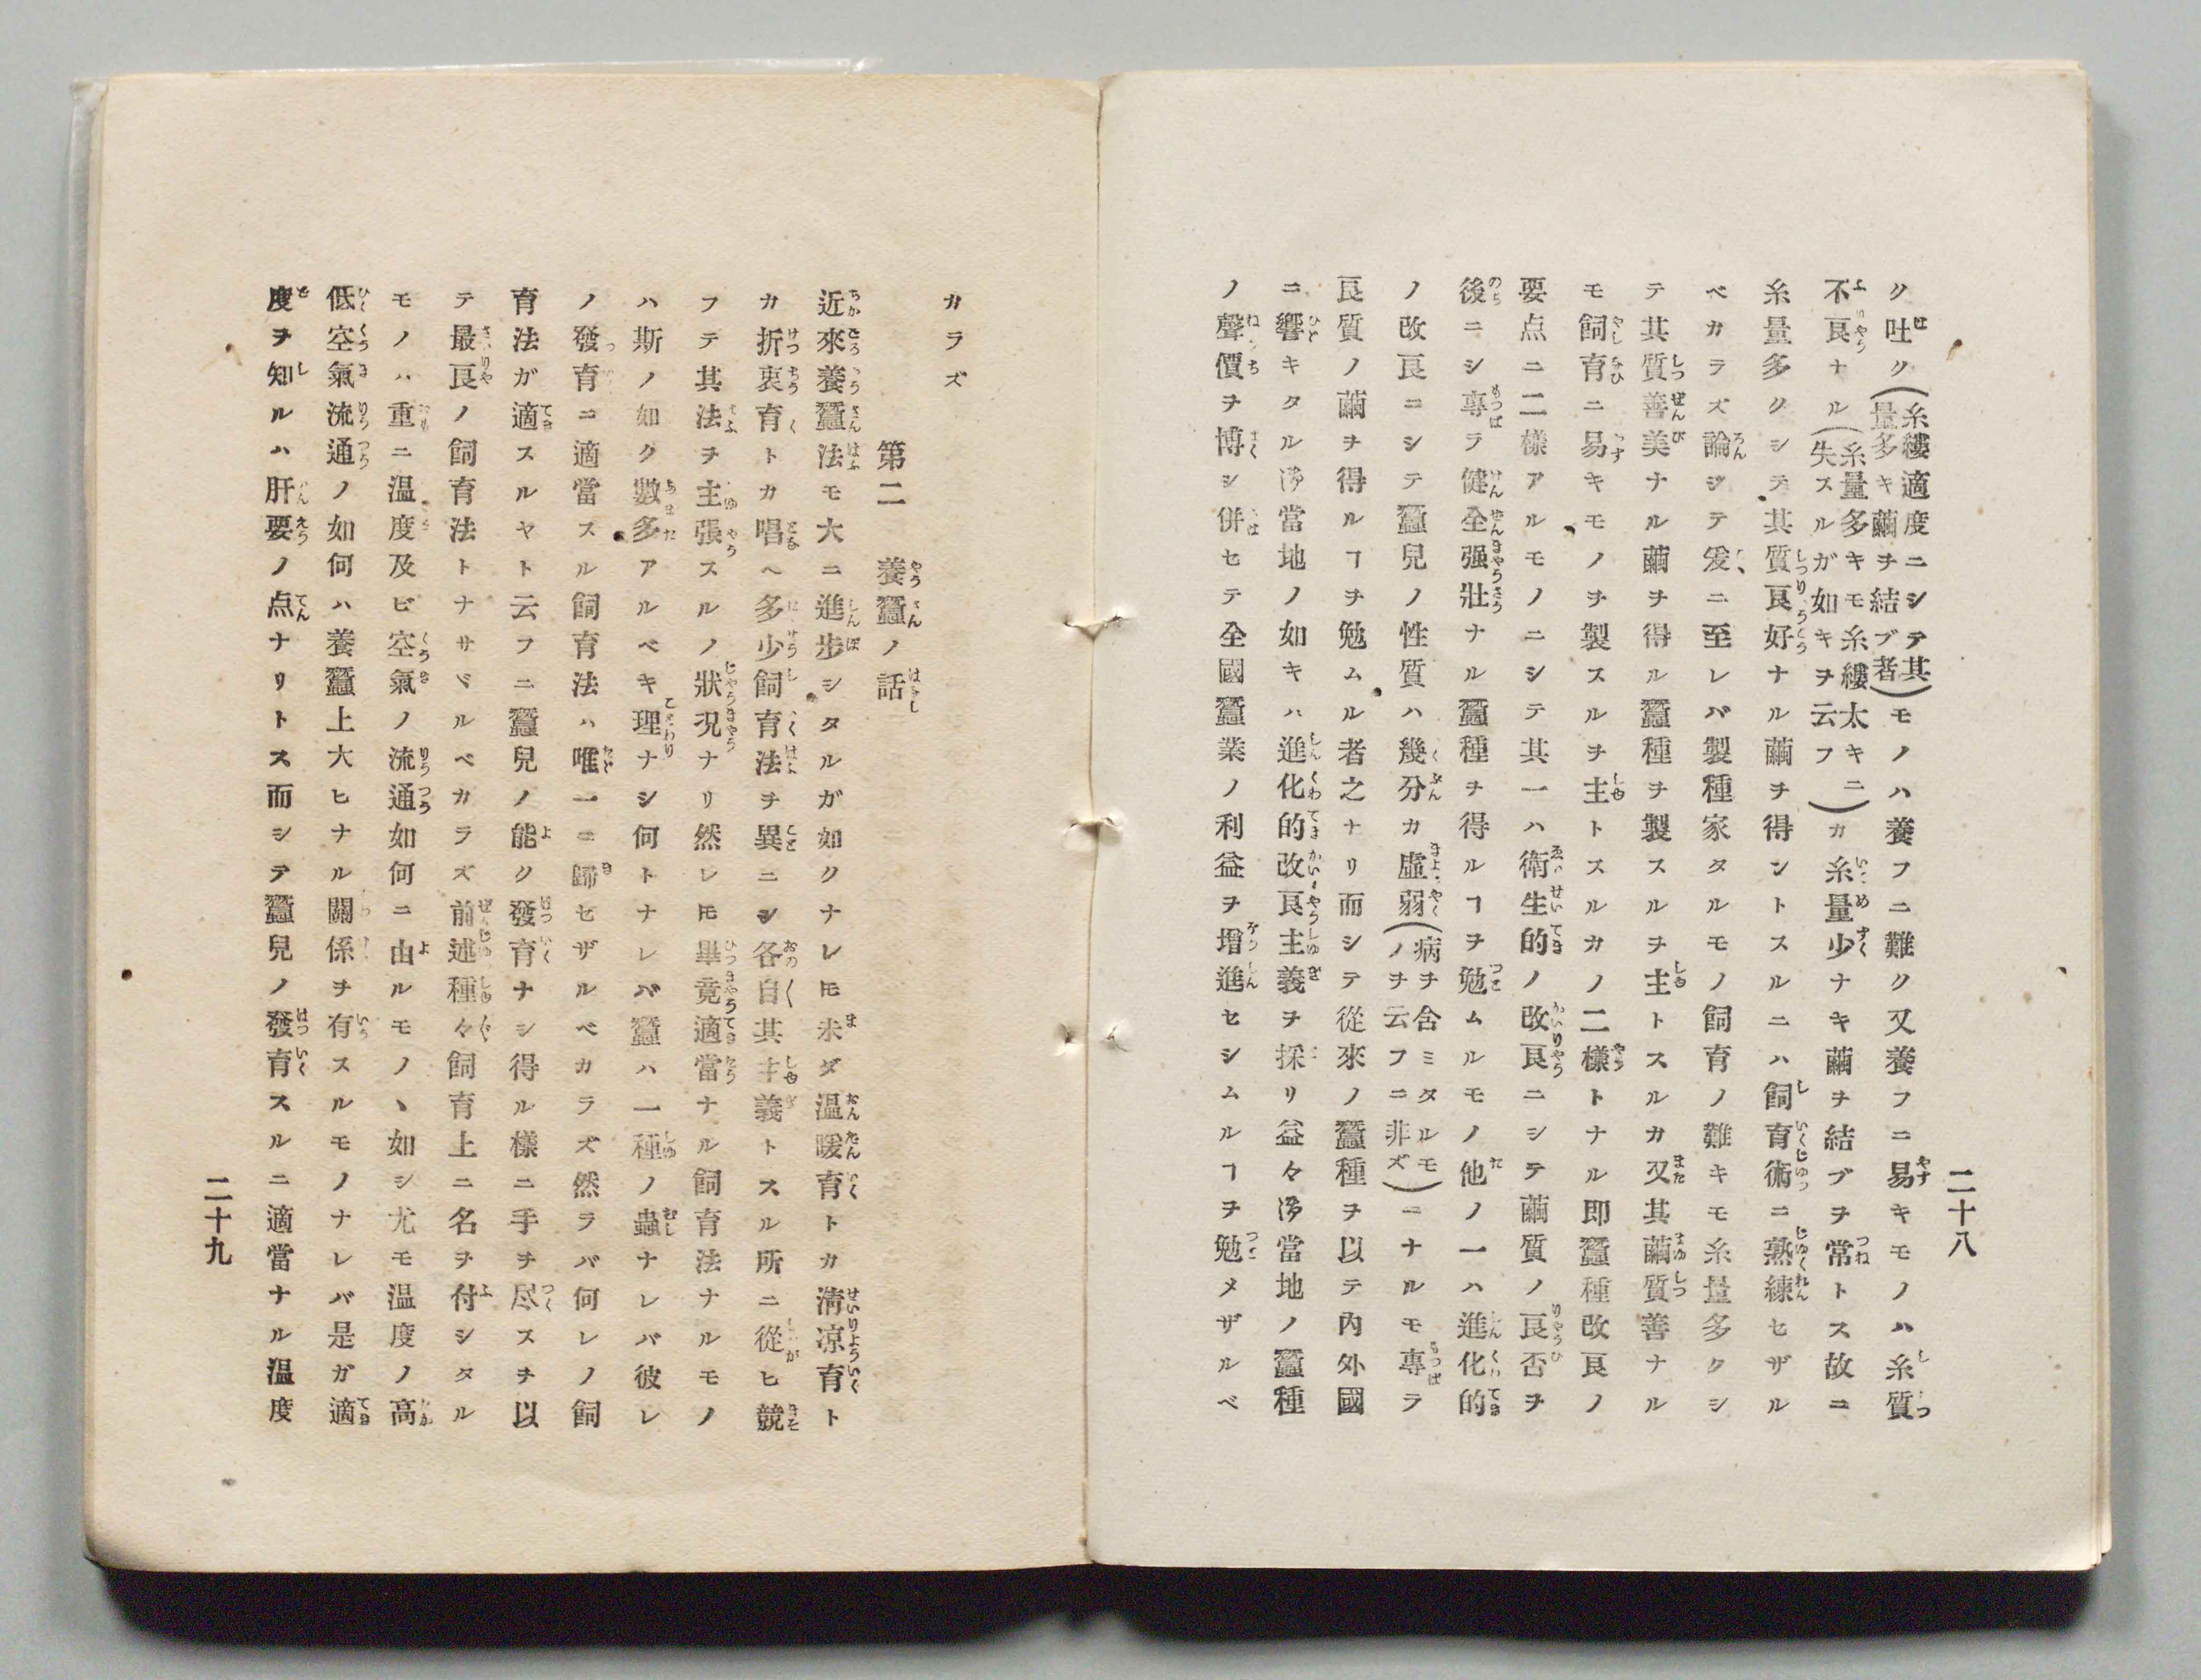 二十八
ク吐ク(糸縷適度ニシテ其量多キ繭ヲ結ブ者)モノハ養フニ難ク又養フニ易キモノハ糸質
不良ナル(糸量多キモ糸縷太キニ失スルガ如キヲ云フ)カ糸量少ナキ繭ヲ結ブヲ常トス故ニ
糸量多クシテ其質良好ナル繭ヲ得ントスルニハ飼育術ニ熟練セザル
ベカラズ論ジテ爰ニ至レバ製種家タルモノ飼育ノ難キモ糸量多クシ
テ其質善美ナル繭ヲ得ル蠶種ヲ製スルヲ主トスルカ又其繭質善ナル
モ飼育ニ易キモノヲ製スルヲ主トスルカノ二樣トナル即蠶種改良ノ
要点ニ二樣アルモノニシテ其一ハ衛生的ノ改良ニシテ繭質ノ良否ヲ
後ニシ專ラ健全强壯ナル蠶種ヲ得ルヿヲ勉ムルモノ他ノ一ハ進化的
ノ改良ニシテ蠶兒ノ性質ハ幾分カ虛弱(病ヲ含ミタルモノヲ云フニ非ズ)ニナルモ專ラ
良質ノ繭ヲ得ルヿヲ勉ムル者之ナリ而シテ從來ノ蠶種ヲ以テ內外國
ニ響キタル當地ノ如キハ進化的改良主義ヲ採リ益々當地ノ蠶種
ノ聲價ヲ博シ併セテ全國蠶業ノ利益ヲ增進セシムルヿヲ勉メザルベ
カラズ
第二 養蠶ノ話
近來養蠶法モ大ニ進步シタルガ如クナレ𪜈未ダ溫暖育トカ淸凉育ト
カ折衷育トカ唱ヘ多少飼育法ヲ異ニシ各自其主義トスル所ニ從ヒ競
フテ其法ヲ主張スルノ狀况ナリ然レ𪜈畢竟適當ナル飼育法ナルモノ
ハ斯ノ如ク數多アルベキ理ナシ何トナレバ蠶ハ一種ノ蟲ナレバ彼レ
ノ發育ニ適當スル飼育法ハ唯一ニ歸セザルベカラズ然ラバ何レノ飼
育法ガ適スルヤト云フニ蠶兒ノ能ク發育ナシ得ル樣ニ手ヲ尽スヲ以
テ最良ノ飼育法トナサヾルベカラズ前述種々飼育上ニ名ヲ付シタル
モノハ重ニ溫度及ビ空氣ノ流通如何ニ由ルモノヽ如シ尤モ溫度ノ高
低空氣流通ノ如何ハ養蠶上大ヒナル關係ヲ有スルモノナレバ是ガ適
度ヲ知ルハ肝要ノ点ナリトス而シテ蠶兒ノ發育スルニ適當ナル溫度
二十九